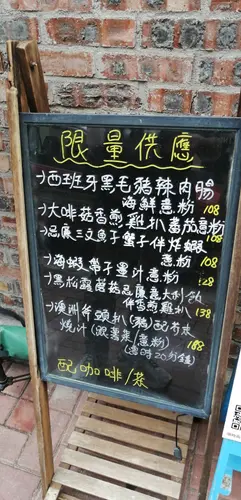 限量供應
→西班牙黑毛豬辣肉腸
海鮮意粉 108
→大啡菇香煎雞扒蕃茄意粉
108
→忌廉三文魚子蟹子伴炸蝦
意粉 108
→海蝦帶子墨汁意粉 128
→黑松露蘑菇忌廉意大利飯
伴香煎雞扒 138
→澳洲斧頭扒(豬)配
燒汁(跟薯菜/意粉)
(需時20分鐘) 188
配咖啡/茶